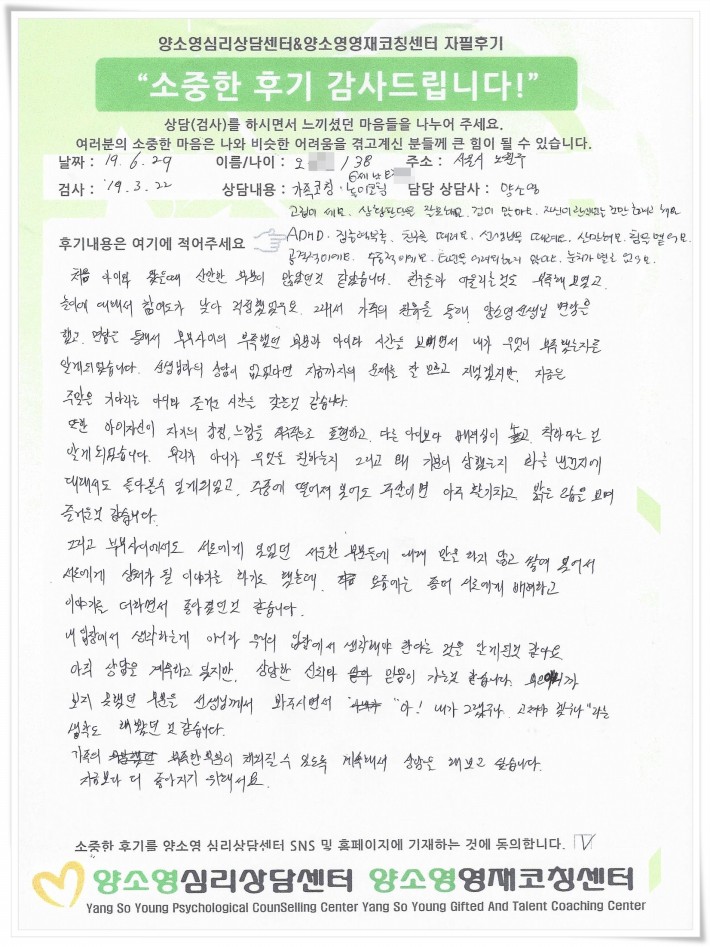 양소영심리상담센터&양소영영재코칭센터 자필후기
"소중한 후기 감사드립니다!"
상담(검사)를 하시면서 느끼셨던 마음들을 나누어 주세요.
여러분의 소중한 마음은 나와 비슷한 어려움을 겪고계신 분들께 큰 힘이 될 수 있습니다.
날짜 : 19. 6. 29 이름/나이 : 오 / 38 주소 : 서울시 노원구
6세 남 E
검사 : '19. 3. 22 상담내용 : 가족코칭 · 놀이코칭 담당 상담사 : 양소영
고집이 세요. 상황판단을 잘못해요. 겁이 많아요. 자신이 관심있는 것만 하려고 해요
후기내용은 여기에 적어주세요
ADHD. 집중력부족, 친구를 때려요. 선생님을 때려요. 산만해요.
공격적이에요. 눈치가 별로 없어요.
처음 아이와 왔을때 산만한 부분이 많았던것 같았습니다. 친구들과 어울리는것도 부족해 보였고.
놀이에 대해서 참여도가 낮아 걱정했었구요. 그래서 가족의 권유를 통해, 양소영선생님 면담을
했고, 면담을 통해서 부부사이의 부족했던 부분과 아이와 시간을 보내면서 내가 무엇이 부족했는지를
알게되었습니다. 선생님과의 상담이 없었다면 지금까지의 문제를 잘 모르고 지냈겠지만, 지금은
주말을 기다리는 아이와 즐거운 시간을 갖는것 같습니다.
또한 아이자신이 자기의 감정, 느낌을 표현하고, 다른 아이보다 배려심이 높고 착하다는 걸
알게되었습니다. 우리가 아이가 무엇을 원하는지 그리고 왜 기분이 상했는지 화를 내는지에
대해서도 돌아볼수 있게되었고, 주중에 떨어져 있어도 주말이면 아주 활기차고 밝은 모습을 보며
즐거운것 같습니다.
그리고 부부사이에서도 서로에게 있었던 서운한 부분들에 대해 말을 하지 않고 쌓여 있어서
서로에게 상처가 될 이야기를 하기도 했는데, 요즘에는 좀더 서로에게 배려하고
이야기를 더하면서 좋아졌던것 같습니다.
내 입장에서 생각하는게 아니라 우리의 입장에서 생각해야 한다는 것을 알게된것 같아요
아직 상담을 계속하고 있지만, 상담한 신뢰와 믿음이 가는것 같습니다.
보지 못했던 부분을 선생님께서 봐주시면서 "아! 내가 그랬구나. 고쳐야 겠구나" 라는
생각도 해봤던 것 같습니다.
가족의 부족한 부분이 채워질 수 있도록 계속해서 상담을 해보고 싶습니다.
지금보다 더 좋아지기 위해서요.
소중한 후기를 양소영 심리상담센터 SNS 및 홈페이지에 기재하는 것에 동의합니다. V
양소영심리상담센터 양소영영재코칭센터
Yang So Young Psychological CounSelling Center Yang So Young Gifted And Talent Coaching Center